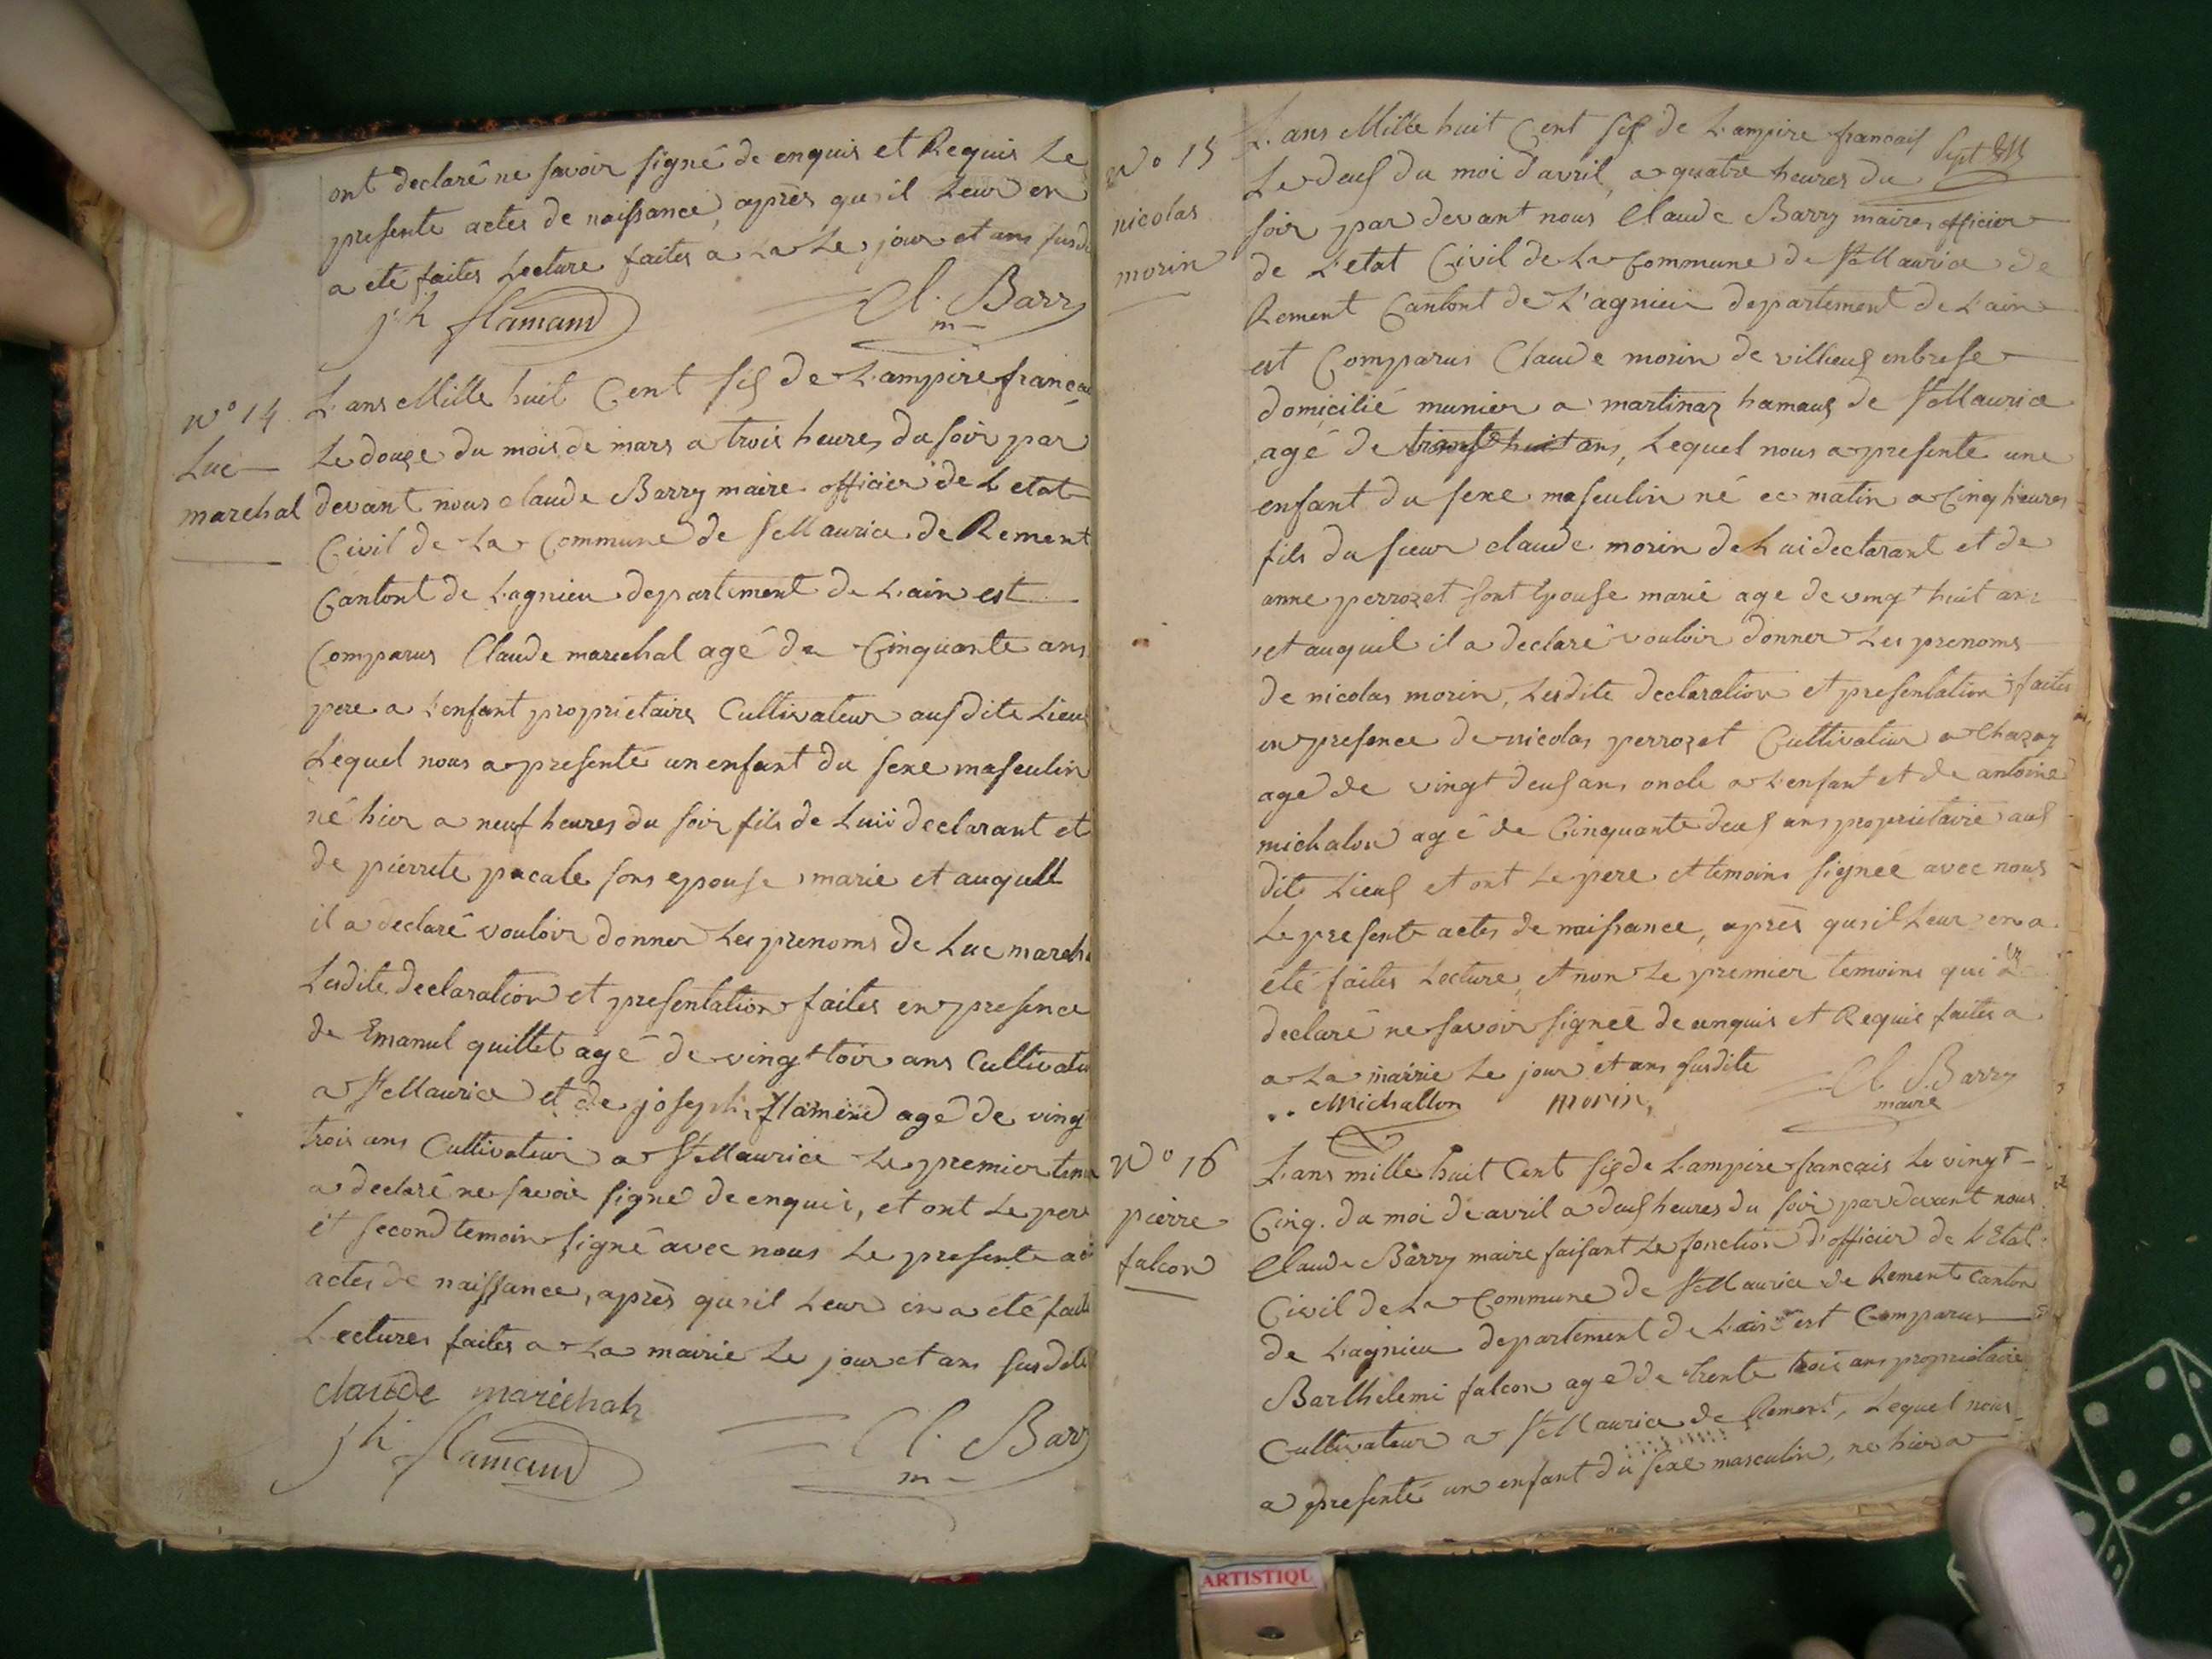 ont declaré ne savoir signé de enquis et Requis Le
presente actes de naissance, après qu'il Leur en
a eté faites Lecture faites a La Le jour et ans susd
jh flamand
Cl. Barry
m
N° 14
Luc
marchal
L'ans Mille huit Cent six de L'ampire françai
Le douze du mois de mars a trois heures du soir par
devant nous claude Barry maire officier de L'etat
Civil de La Commune de St Maurice de Rement
Cantont de Lagnieu departement de L'ain est
Comparus Claude marechal agé de Cinquante ans
pere a L'enfant proprietaire Cultivateur ausdite Lieux
Lequel nous a presenté un enfant du sexe masculin
né hier a neuf heures du soir fils de Luii declarant et
de pierrete pacale sons epouse marié et auquell
il a declaré vouloir donner Les prenoms de Luc marech
Lesdite declaration et presentation faites en presence
de Emanuel quillet agé de vingt toir ans Cultivateu
a St Maurice et de joseph flamend agé de vingt
trois ans Cultivateur a St Maurice Le premier temo
a declaré ne savoir signé de enquis, et ont Le pere
et second temoin signé avec nous Le presente
actes de naissance, après qu'il Leur en a eté faite
Lectures faites a La mairie Le jour et ans susdite
claude marechal
jh flamand
Cl. Barry
m
N° 15
nicolas
morin
L'ans Mille huit Cent six de L'ampire francais
Le deux du moi d'avril a quatre heures du
soir par devant nous Claude Barry maire officier
de L'etat Civil de La Commune de St Maurice de
Rement Cantont de L'agnieu departement de L'ain
est Comparus Claude morin de villieux enbrese
domicilié munier a martinaz hamaux de St Maurice
agé de huit ans, Lequel nous a presente une
enfant du sexe masculin né ce matin a Cinq heures
fils du sieur claude morin de Lui declarant et de
anne perrozet sont Epouse marié age de vingt huit ans
et auquil il a declaré vouloir donner Les prenoms
de nicolas morin, Lesdite declaration et presentation faites
en presence de nicolas perrozet Cultivateur a Chazay
age de vingt deux ans oncle a L'enfant et de antoine
michalon agé de Cinquante deux ans proprietaire aus
dite Lieux et ont Le pere et temoins signée avec nous
Le presente actes de naissance, après qu'il Leur en a
été faites Lecture, et non Le premier temoins qui a
declaré ne savoir signée de enquis et Requis faites a
a La mairie Le jour et ans susdite
Michallon morin
Cl. Barry
maire
N° 16
pierre
falcon
L'ans mille huit Cent six de L'ampire français Le vingt
Cinq. du moi de avril a deux heures du soir par devant nous
Claude Barry maire faisant Le fonction d'officier de L'Etat
Civil de La Commune de St Maurice de Rement Canton
de L'agnieu departement de L'ain est Comparus
Barthelemi falcon agé de trente trois ans proprietaire
Cultivateur a St Maurice de Rement, Lequel nous
a presenté un enfant du sexe masculin, né hier a
ARTISTIQU